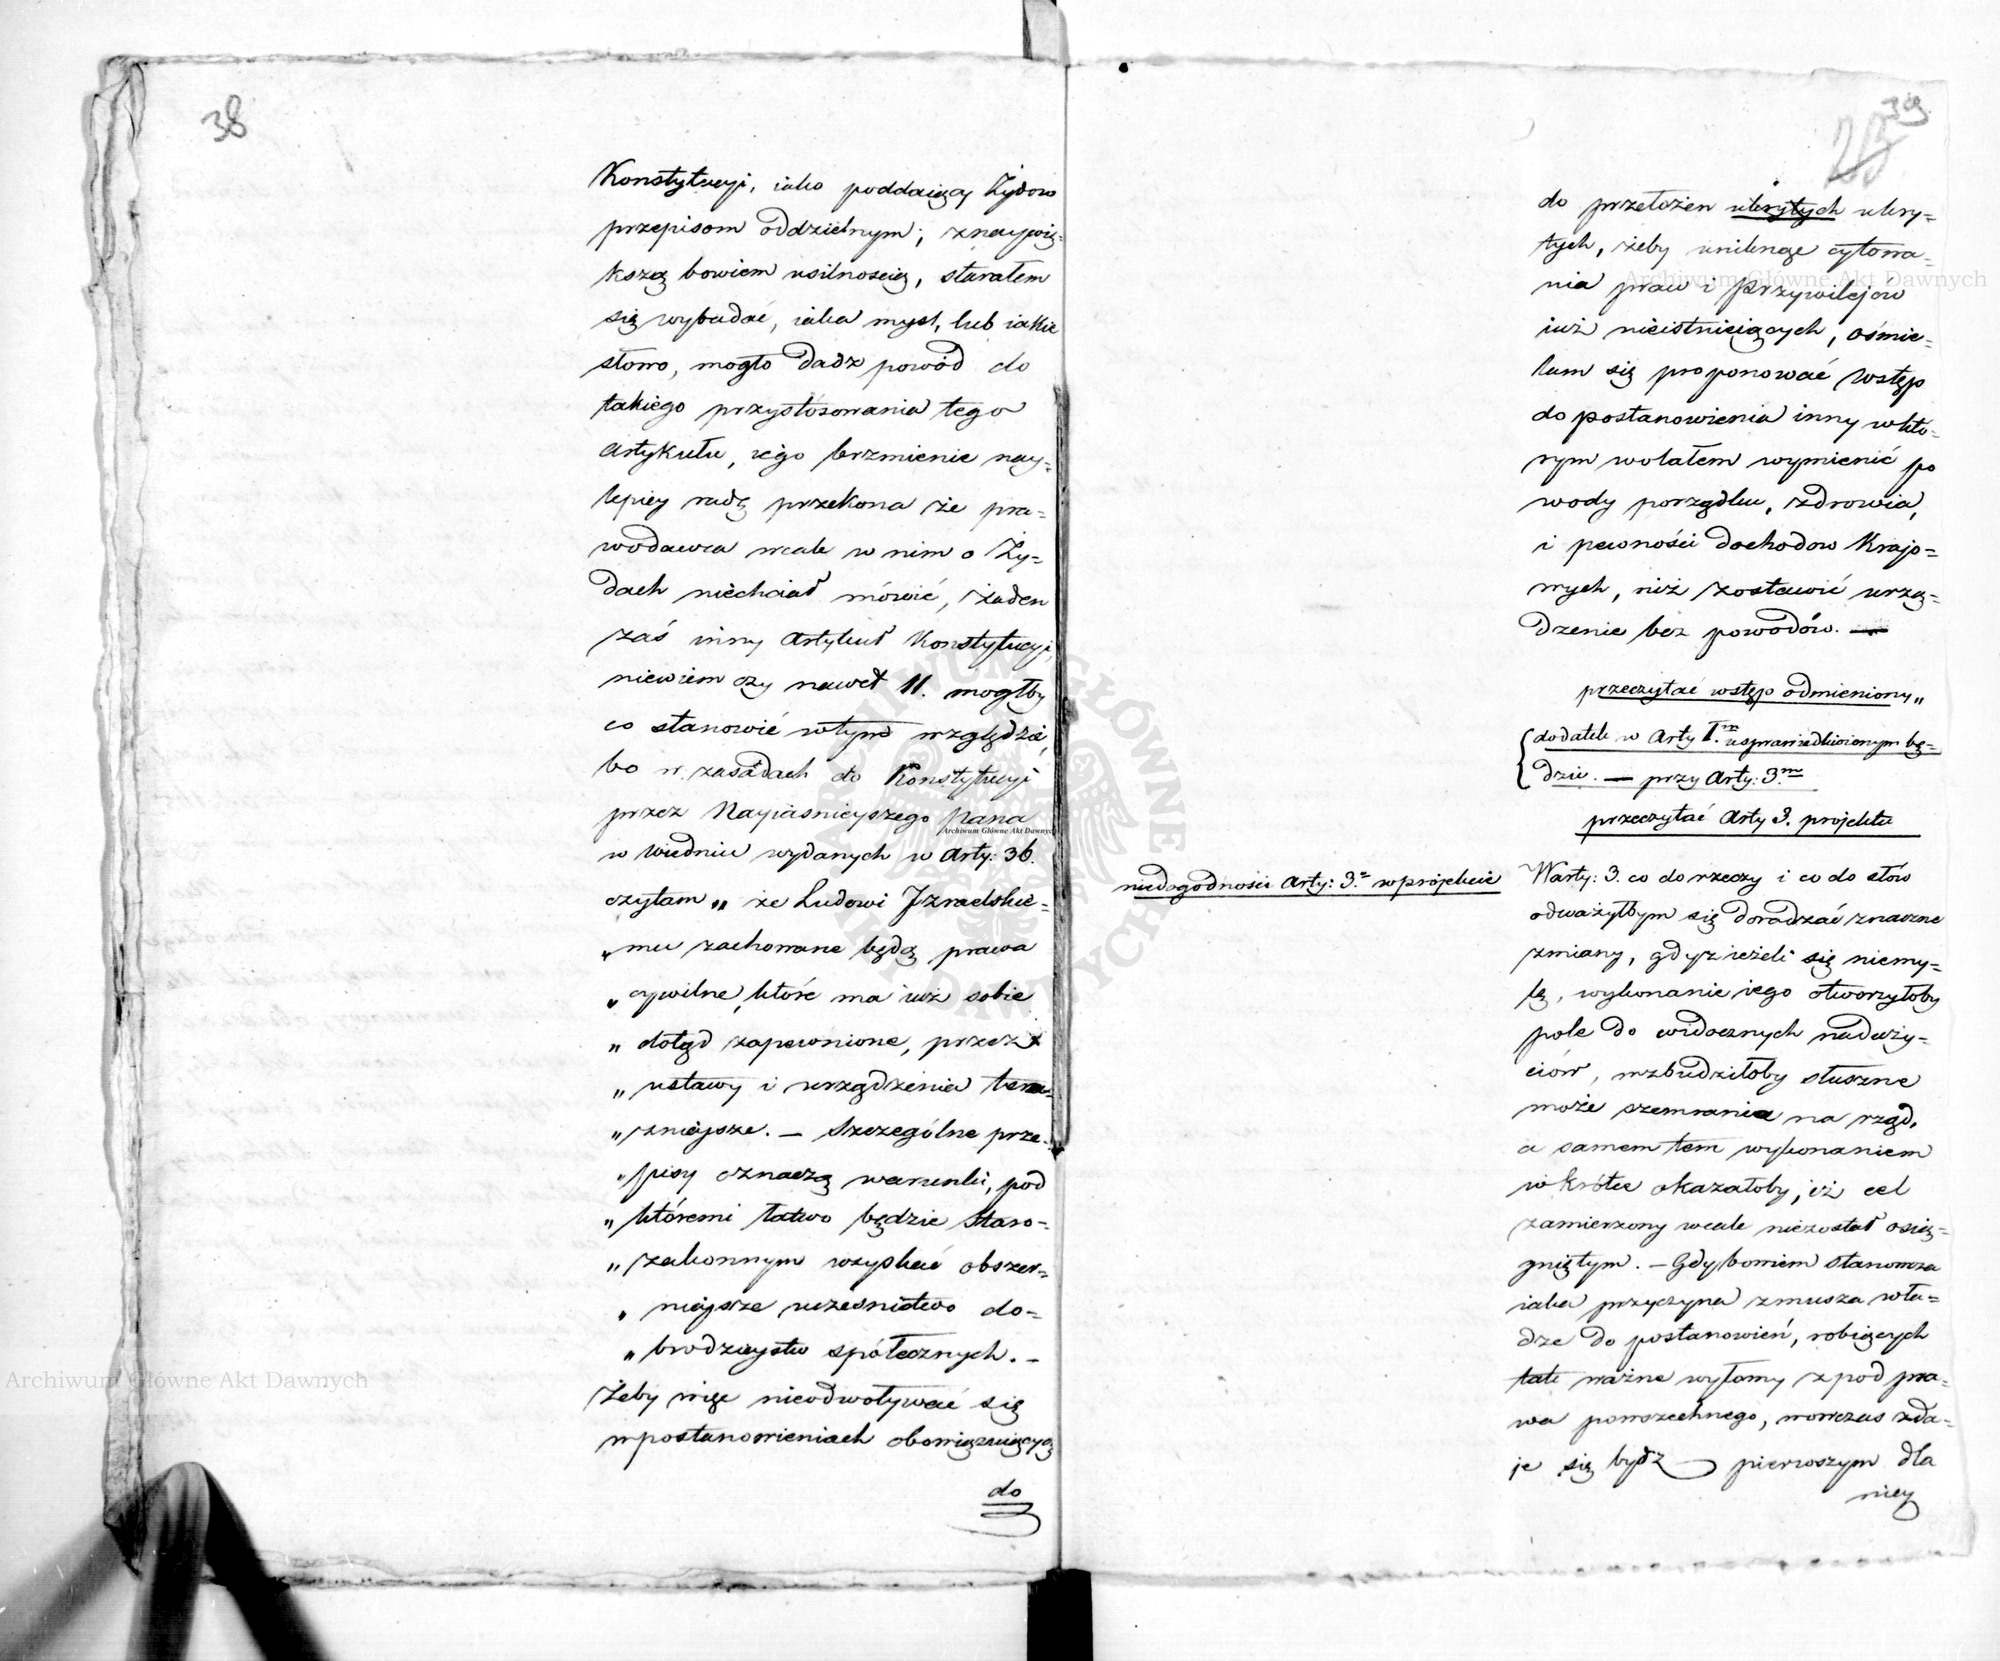 38
Konstytucyi, iako poddaiący Żydow
przepisom oddzielnym; z naywię=
kszą bowiem usilnoscią, starałem
się wybadać, iaka mysl, lub iakie
słowo, mogło dadz powód do
takiego przystósowania tego
Artykułu, iego brzmienie nay=
lepiey radę przekona że pra=
wodawca wcale w nim o Ży=
dach niechciał mówić, żaden
zaś inny Artykuł Konstytucyi,
niewiem czy nawet 11. mogłby
co stanowić w tym względzie,
bo w zasadach do Konstytucyi
przez Nayiasnieyszego Pana
w Wiedniu wydanych w Arty: 36.
czytam „ że Ludowi Izraelskie=
„ mu zachowane będą prawa
„ cywilne, które ma iuż sobie
„ dotąd zapewnione, przez
„ ustawy i urządzenia tera=
„ znieysze. — Szczególne prze=
„ pisy oznaczą warunki, pod
„ któremi łatwo będzie Staro=
„ zakonnym uzyskać obszer=
„ nieysze uczesnictwo do=
„ brodzieystw spółecznych. —
Żeby więc nieodwoływać się
w postanowieniach obowięzuiących
do
39
25
do przełożen ukrytych ukry=
tych, żeby uniknąc cytowa=
nia praw i przywilejow
iuż nieistnieiących, ośmie=
lam się proponować wstęp
do postanowienia inny w któ=
rym wolałem wymienić po
wody porządku, zdrowia,
i pewności dochodow Krajo=
wych, niż zostawić urzą=
dzenie bez powodów. —
przeczytać wstęp odmieniony „
dodatek w Arty I.m usprawiedliwionym bę=
dzie. — przy Arty: 3.m
przeczytać Arty 3. projektu
niedogodności Arty: 3.o w projekcie
W arty: 3. co do rzeczy i co do słów
odważyłbym się doradzać znaczne
zmiany, gdyż ieżeli się niemy=
lę, wykonanie iego otworzyłoby
pole do widocznych naduży=
ciów, wzbudziłoby słuszne
może szemranie na rząd,
a samem tem wykonaniem
wkrótce okazałoby, iż cel
zamierzony wcale niezostał osią=
gniętym. — Gdy bowiem stanowcza
iaka przyczyna zmusza wła=
dze do postanowień, robiących
tak ważne wyłomy z pod pra=
wa powszechnego, wowczas zda=
je się bydź pierwszym dla
niey
Archiwum Główne Akt Dawnych
Archiwum Główne Akt Dawnych
Archiwum Główne Akt Dawnych
ARCHIWUM GŁÓWNE AKT DAWNYCH